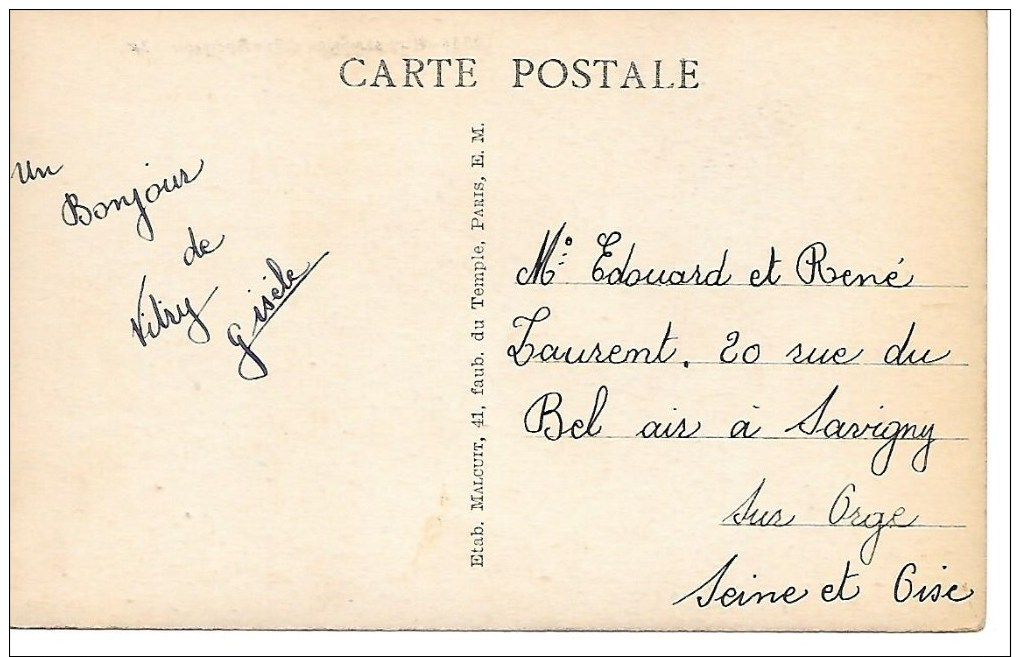 CARTE POSTALE
Un
Bonjour
de
Vitry
Gisèle
Etab. MALCUIT, 41, faub. du Temple, PARIS, E. M.
Mº: Edouard et René
Laurent. 20 rue du
Bel air à Savigny
sur Orge
Seine et Oise